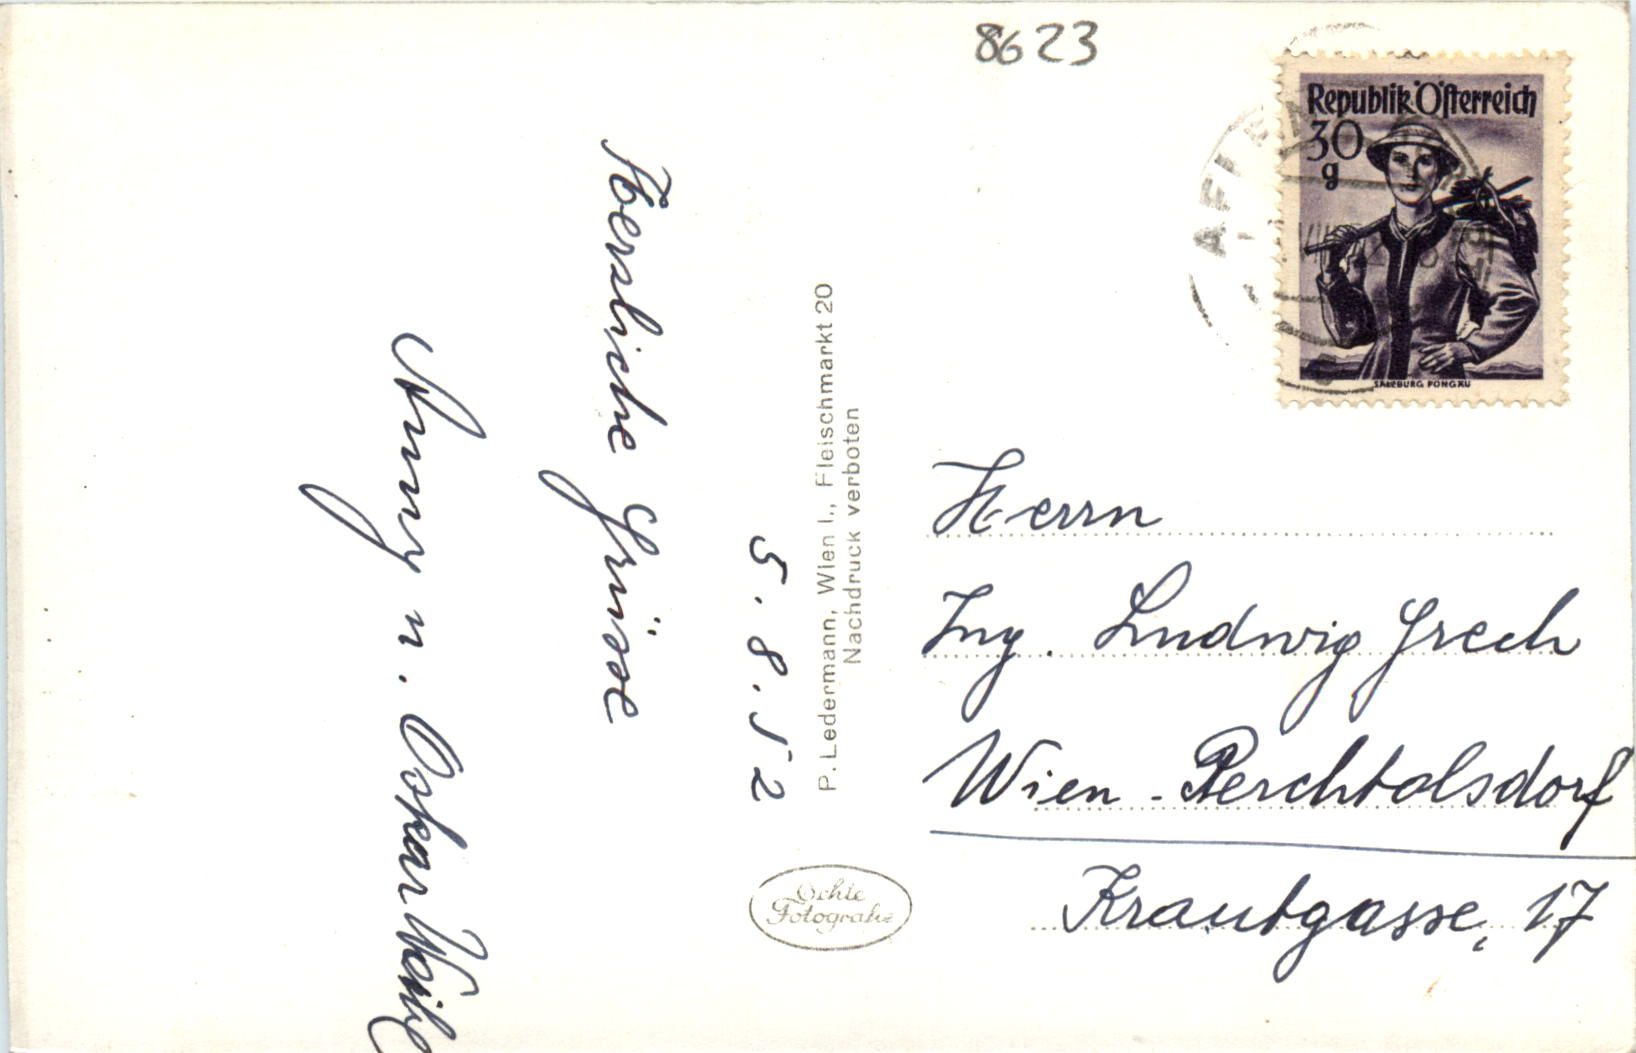 8623
Republik Österreich
30
g
SALZBURG PONGAU
AFLENZ
Herzliche Grüsse
Anny u. Oskar
5.8.52
P. Ledermann, Wien I., Fleischmarkt 20
Nachdruck verboten
Echte
Fotografie
Herrn
Ing. Ludwig Grech
Wien - Perchtolsdorf
Krautgasse, 17